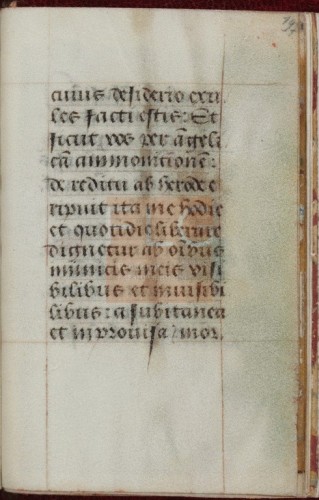 cuius desiderio exu
les facti estis: Et
sicut vos per āgeli
cā ammonitionē:
de reditu ab herode e
ripuit ita me hodie
et quotidie liberare
dignetur ab oībus
inimicis meis visi
bilibus et invisibi
libus: a subitanea
et improvisa mor,